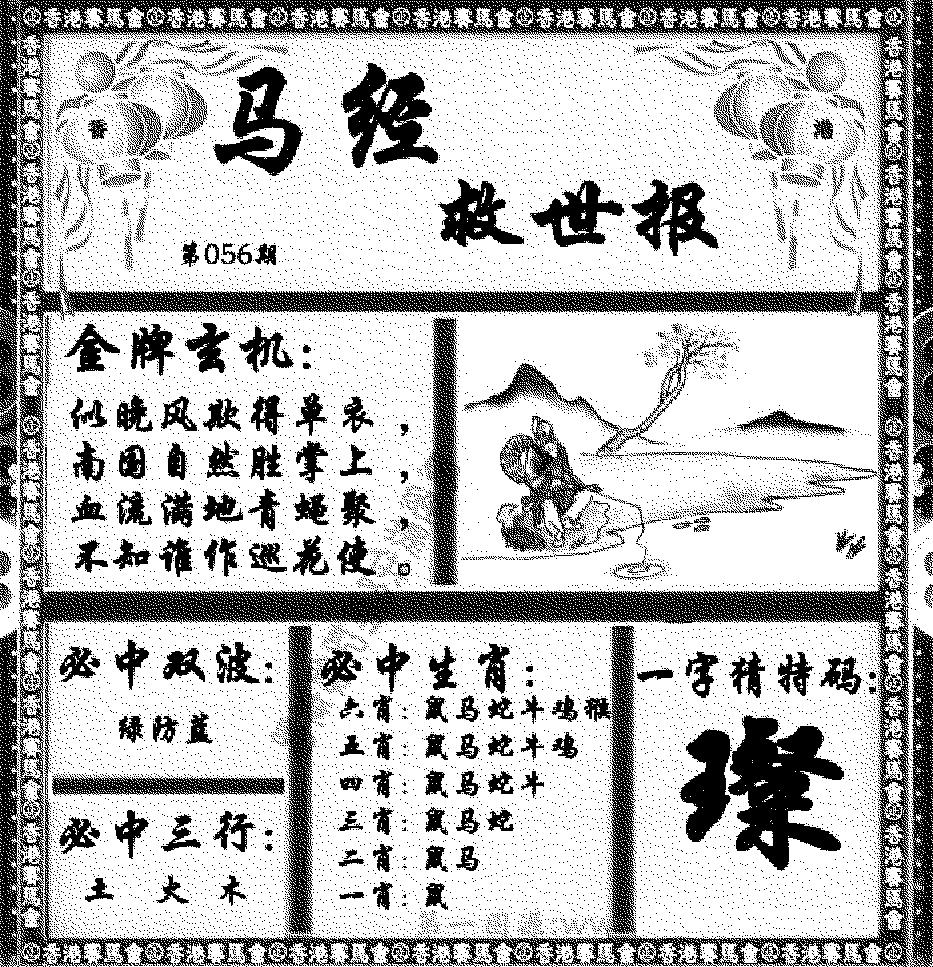 香港賽馬會香港賽馬會香港賽馬會香港賽馬會香港賽馬會香港賽馬會香港賽馬會
香
港
马经
救世报
第056期
金牌玄机:
似晚风欺得单衣,
南国自然胜掌上,
血流满地青蝇聚,
不知谁作巡花使。
必中双波:
绿防蓝
必中三行:
土 火 木
必中生肖:
六肖: 鼠马蛇牛鸡猴
五肖: 鼠马蛇牛鸡
四肖: 鼠马蛇牛
三肖: 鼠马蛇
二肖: 鼠马
一肖: 鼠
一字猜特码:
璨
香港賽馬會香港賽馬會香港賽馬會香港賽馬會香港賽馬會香港賽馬會香港賽馬會